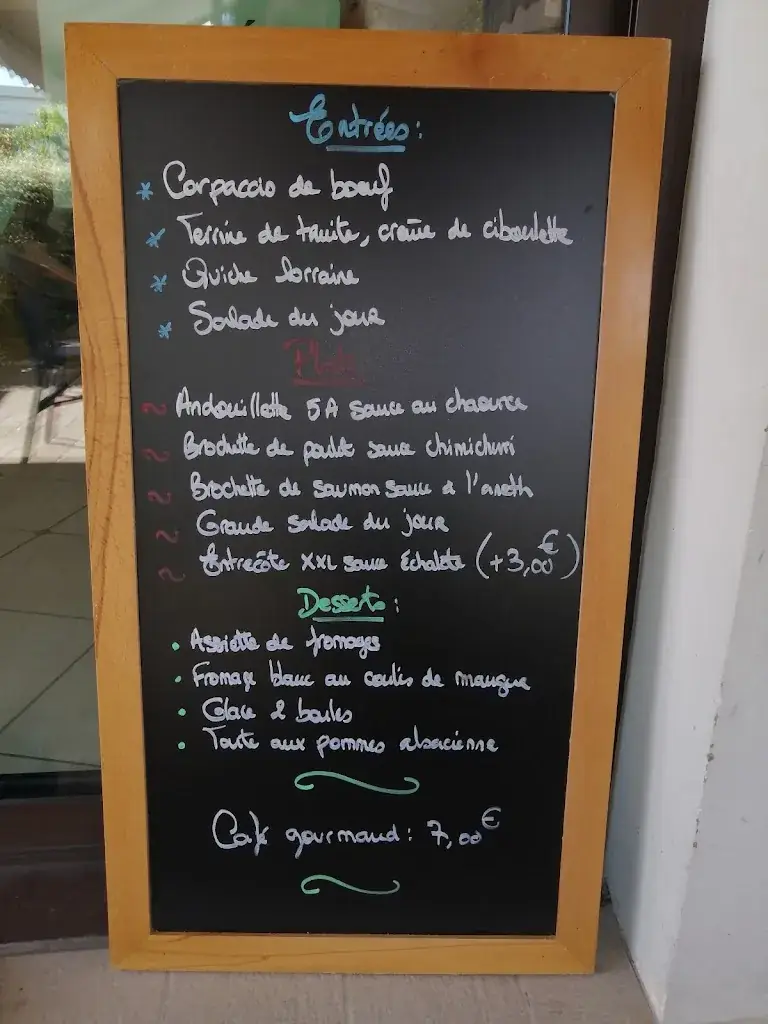 Entrées:
* Carpaccio de boeuf
* Terrine de truite, crème de ciboulette
* Quiche lorraine
* Salade du jour
Plats
Andouillette 5A sauce au chaource
Brochette de poulet sauce chimichuri
Brochette de saumon sauce à l'aneth
Grande salade du jour
Entrecôte XXL sauce échalote (+3,00€)
Desserts:
• Assiette de fromages
• Fromage blanc au coulis de mangue
• Glace 2 boules
• Tarte aux pommes alsacienne
Café gourmand: 7,00€